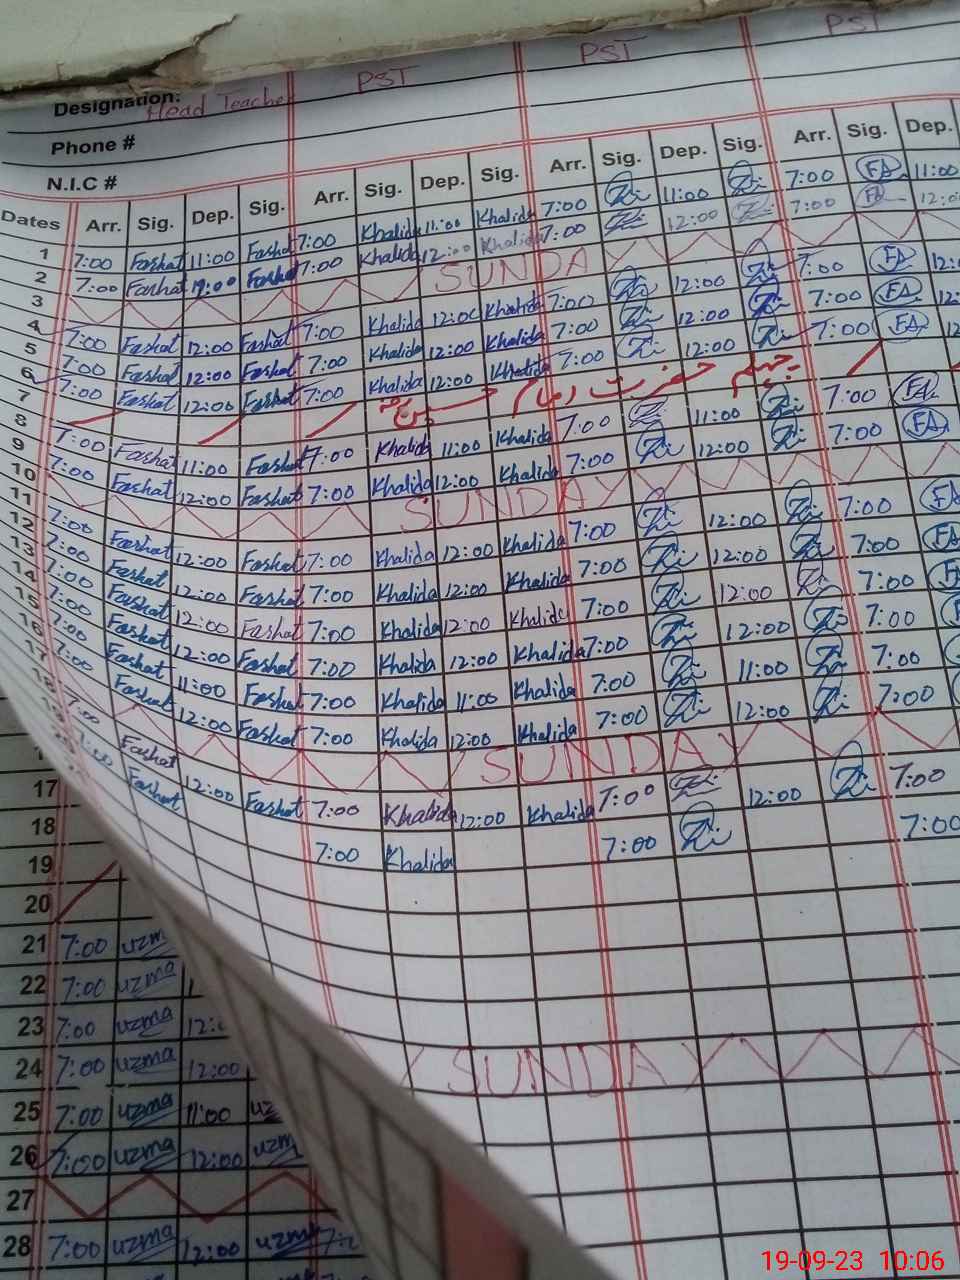 PST PST PST
Designation: Head Teacher
Phone #
N.I.C #
Dates Arr. Sig. Dep. Sig. Arr. Sig. Dep. Sig. Arr. Sig. Dep. Sig. Arr. Sig. Dep.
1 7:00 Fashat 11:00 Fashat 7:00 Khalida 11:00 Khalida 7:00 11:00 7:00 FA 11:00
2 7:00 Fashat Fashat 7:00 Khalida 12:00 Khalida 7:00 12:00 7:00 FA
3 SUNDAY
4 7:00 Fashat 12:00 Fashat 7:00 Khalida 12:00 Khalida 7:00 12:00 7:00 FA
5 7:00 Fashat 12:00 Fashat 7:00 Khalida 12:00 Khalida 7:00 12:00 7:00 FA
6 7:00 Fashat 12:00 Fashat 7:00 Khalida 12:00 Khalida 7:00 12:00 7:00 FA
7 چہلم حضرت امام حسین
8 7:00 Fashat 11:00 Fashat 7:00 Khalida 11:00 Khalida 7:00 11:00 7:00 FA
9 7:00 Fashat 12:00 Fashat 7:00 Khalida 12:00 Khalida 7:00 12:00 7:00 FA
10 SUNDAY
11 7:00 Fashat 12:00 Fashat 7:00 Khalida 12:00 Khalida 7:00 12:00 7:00 FA
12 7:00 Fashat 12:00 Fashat 7:00 Khalida 12:00 Khalida 7:00 12:00 7:00 FA
13 7:00 Fashat 12:00 Fashat 7:00 Khalida 12:00 Khalida 7:00 12:00 7:00
14 7:00 Fashat 12:00 Fashat 7:00 Khalida 12:00 Khalida 7:00 12:00 7:00
15 7:00 Fashat 11:00 Fashat 7:00 Khalida 11:00 Khalida 7:00 11:00 7:00
16 7:00 Fashat 12:00 Fashat 7:00 Khalida 12:00 Khalida 7:00 12:00 7:00
17 SUNDAY
7:00 Fashat 12:00 Fashat 7:00 Khalida 12:00 Khalida 7:00 12:00 7:00
Fashat 7:00 Khalida 7:00 7:00
SUNDAY
17
18
19
20
21 7:00 uzma
22 7:00 uzma
23 7:00 uzma
24 7:00 uzma 12:00
25 7:00 uzma 11:00
26 7:00 uzma 12:00
27
28 7:00 uzma 12:00 uzma
19-09-23 10:06